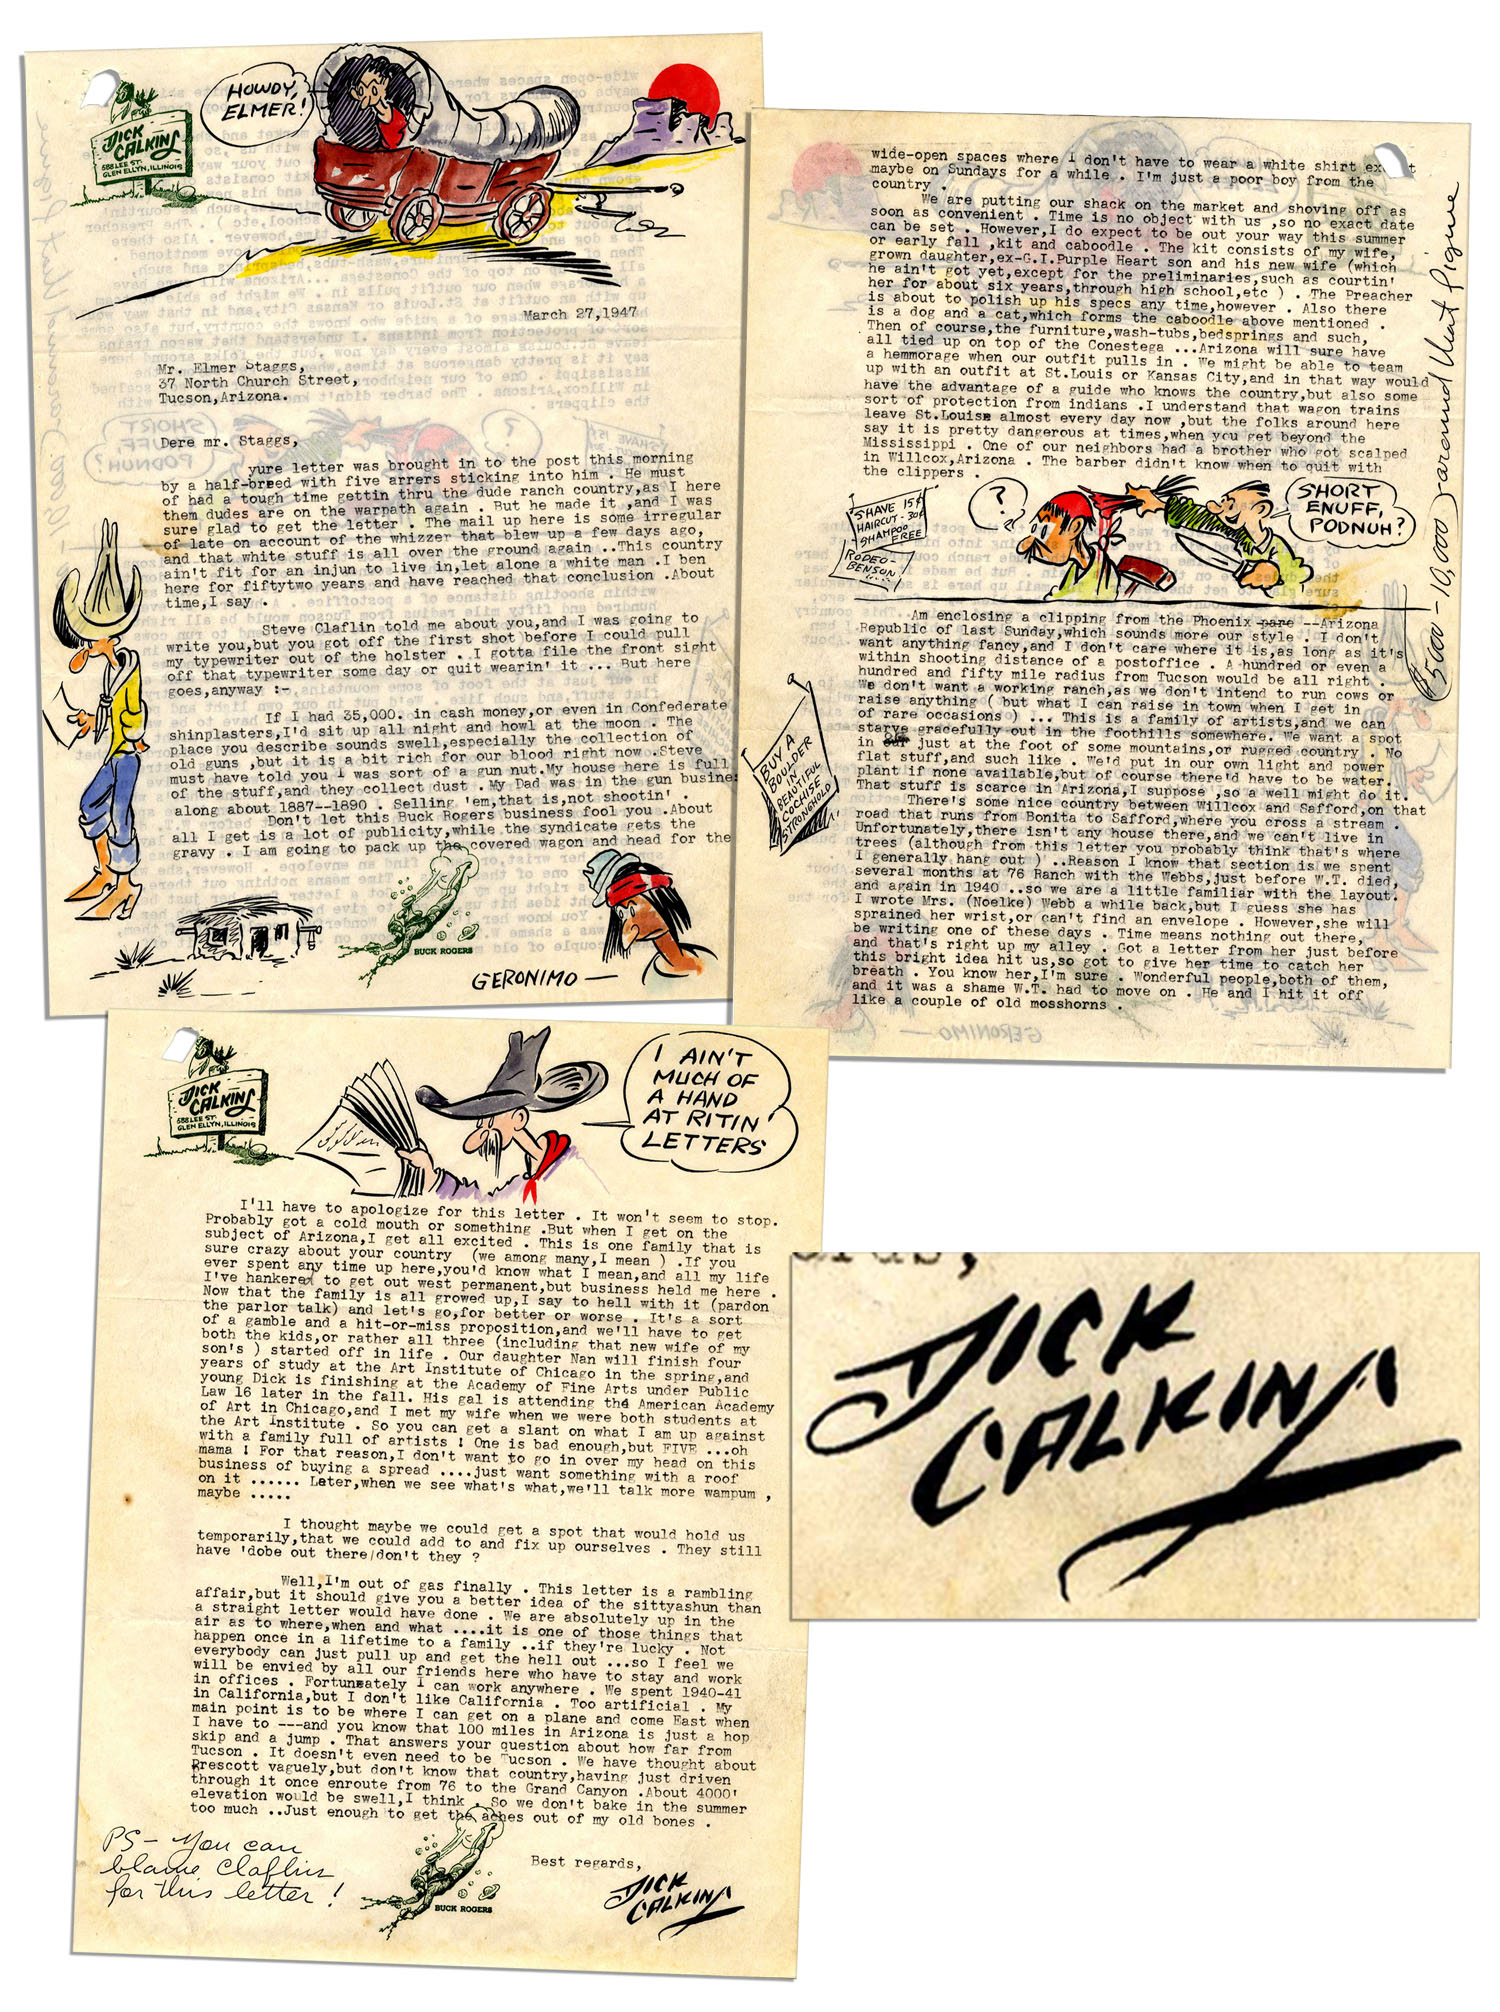 DICK
CALKINS
588 LEE ST.
GLEN ELLYN, ILLINOIS
HOWDY,
ELMER!
March 27,1947
Mr. Elmer Staggs,
37 North Church Street,
Tucson,Arizona.
Dere mr. Staggs,
yure letter was brought in to the post this morning
by a half-breed with five arrers sticking into him . He must
of had a tough time gettin thru the dude ranch country,as I here
them dudes are on the warpath again . But he made it ,and I was
sure glad to get the letter . The mail up here is some irregular
of late on account of the whizzer that blew up a few days ago,
and that white stuff is all over the ground again ..This country
ain't fit for an injun to live in,let alone a white man .I ben
here for fiftytwo years and have reached that conclusion .About
time,I say .
Steve Claflin told me about you,and I was going to
write you,but you got off the first shot before I could pull
my typewriter out of the holster . I gotta file the front sight
off that typewriter some day or quit wearin' it ... But here
goes,anyway :-
If I had 35,000. in cash money,or even in Confederate
shinplasters,I'd sit up all night and howl at the moon . The
place you describe sounds swell,especially the collection of
old guns ,but it is a bit rich for our blood right now .Steve
must have told you I was sort of a gun nut.My house here is full
of the stuff,and they collect dust . My Dad was in the gun busine
along about 1887--1890 . Selling 'em,that is,not shootin' .
Don't let this Buck Rogers business fool you .About
all I get is a lot of publicity,while the syndicate gets the
gravy . I am going to pack up the covered wagon and head for the
BUCK ROGERS
GERONIMO —
wide-open spaces where I don't have to wear a white shirt ex t
maybe on Sundays for a while . I'm just a poor boy from the
country .
We are putting our shack on the market and shoving off as
soon as convenient . Time is no object with us ,so no exact date
can be set . However,I do expect to be out your way this summer
or early fall ,kit and caboodle . The kit consists of my wife,
grown daughter,ex-G.I.Purple Heart son and his new wife (which
he ain't got yet,except for the preliminaries,such as courtin'
her for about six years,through high school,etc ) . The Preacher
is about to polish up his specs any time,however . Also there
is a dog and a cat,which forms the caboodle above mentioned .
Then of course,the furniture,wash-tubs,bedsprings and such,
all tied up on top of the Conestega ...Arizona will sure have
a hemmorage when our outfit pulls in . We might be able to team
up with an outfit at St.Louis or Kansas City,and in that way would
have the advantage of a guide who knows the country,but also some
sort of protection from indians .I understand that wagon trains
leave St.Louis almost every day now ,but the folks around here
say it is pretty dangerous at times,when you get beyond the
Mississippi . One of our neighbors had a brother who got scalped
in Willcox,Arizona . The barber didn't know when to quit with
the clippers .
SHAVE 15¢
HAIRCUT-30¢
SHAMPOO
FREE
RODEO-
BENSON
?
SHORT
ENUFF,
PODNUH?
$5000 - 10,000 around that figure
Am enclosing a clipping from the Phoenix pare --Arizona
Republic of last Sunday,which sounds more our style . I don't
want anything fancy,and I don't care where it is,as long as it's
within shooting distance of a postoffice . A hundred or even a
hundred and fifty mile radius from Tucson would be all right .
We don't want a working ranch,as we don't intend to run cows or
raise anything ( but what I can raise in town when I get in
of rare occasions ) ... This is a family of artists,and we can
starve gracefully out in the foothills somewhere. We want a spot
in our just at the foot of some mountains,or rugged country . No
flat stuff,and such like . We'd put in our own light and power
plant if none available,but of course there'd have to be water.
That stuff is scarce in Arizona,I suppose ,so a well might do it.
There's some nice country between Willcox and Safford,on that
road that runs from Bonita to Safford,where you cross a stream .
Unfortunately,there isn't any house there,and we can't live in
trees (although from this letter you probably think that's where
I generally hang out ) ..Reason I know that section is we spent
several months at 76 Ranch with the Webbs,just before W.T. died,
and again in 1940 ..so we are a little familiar with the layout.
I wrote Mrs. (Noelke) Webb a while back,but I guess she has
sprained her wrist,or can't find an envelope . However,she will
be writing one of these days . Time means nothing out there,
and that's right up my alley . Got a letter from her just before
this bright idea hit us,so got to give her time to catch her
breath . You know her,I'm sure . Wonderful people,both of them,
and it was a shame W.T. had to move on . He and I hit it off
like a couple of old mosshorns .
BUY A
BOULDER
IN
BEAUTIFUL
COCHISE
STRONGHOLD
DICK
CALKINS
588 LEE ST.
GLEN ELLYN, ILLINOIS
I AIN'T
MUCH OF
A HAND
AT RITIN'
LETTERS
I'll have to apologize for this letter . It won't seem to stop.
Probably got a cold mouth or something .But when I get on the
subject of Arizona,I get all excited . This is one family that is
sure crazy about your country (we among many,I mean ) .If you
ever spent any time up here,you'd know what I mean,and all my life
I've hankered to get out west permanent,but business held me here .
Now that the family is all growed up,I say to hell with it (pardon
the parlor talk) and let's go,for better or worse . It's a sort
of a gamble and a hit-or-miss proposition,and we'll have to get
both the kids,or rather all three (including that new wife of my
son's ) started off in life . Our daughter Nan will finish four
years of study at the Art Institute of Chicago in the spring,and
young Dick is finishing at the Academy of Fine Arts under Public
Law 16 later in the fall. His gal is attending the American Academy
of Art in Chicago,and I met my wife when we were both students at
the Art Institute . So you can get a slant on what I am up against
with a family full of artists ! One is bad enough,but FIVE ...oh
mama ! For that reason,I don't want to go in over my head on this
business of buying a spread ....just want something with a roof
on it ...... Later,when we see what's what,we'll talk more wampum ,
maybe .....
I thought maybe we could get a spot that would hold us
temporarily,that we could add to and fix up ourselves . They still
have 'dobe out there/don't they ?
Well,I'm out of gas finally . This letter is a rambling
affair,but it should give you a better idea of the sittyashun than
a straight letter would have done . We are absolutely up in the
air as to where,when and what ....it is one of those things that
happen once in a lifetime to a family ..if they're lucky . Not
everybody can just pull up and get the hell out ...so I feel we
will be envied by all our friends here who have to stay and work
in offices . Fortunately I can work anywhere . We spent 1940-41
in California,but I don't like California . Too artificial . My
main point is to be where I can get on a plane and come East when
I have to ----and you know that 100 miles in Arizona is just a hop
skip and a jump . That answers your question about how far from
Tucson . It doesn't even need to be Tucson . We have thought about
Prescott vaguely,but don't know that country,having just driven
through it once enroute from 76 to the Grand Canyon .About 4000'
elevation would be swell,I think . So we don't bake in the summer
too much ..Just enough to get the aches out of my old bones .
PS- You can
blame Claflin
for this letter !
BUCK ROGERS
Best regards,
DICK
CALKINS
DICK
CALKINS